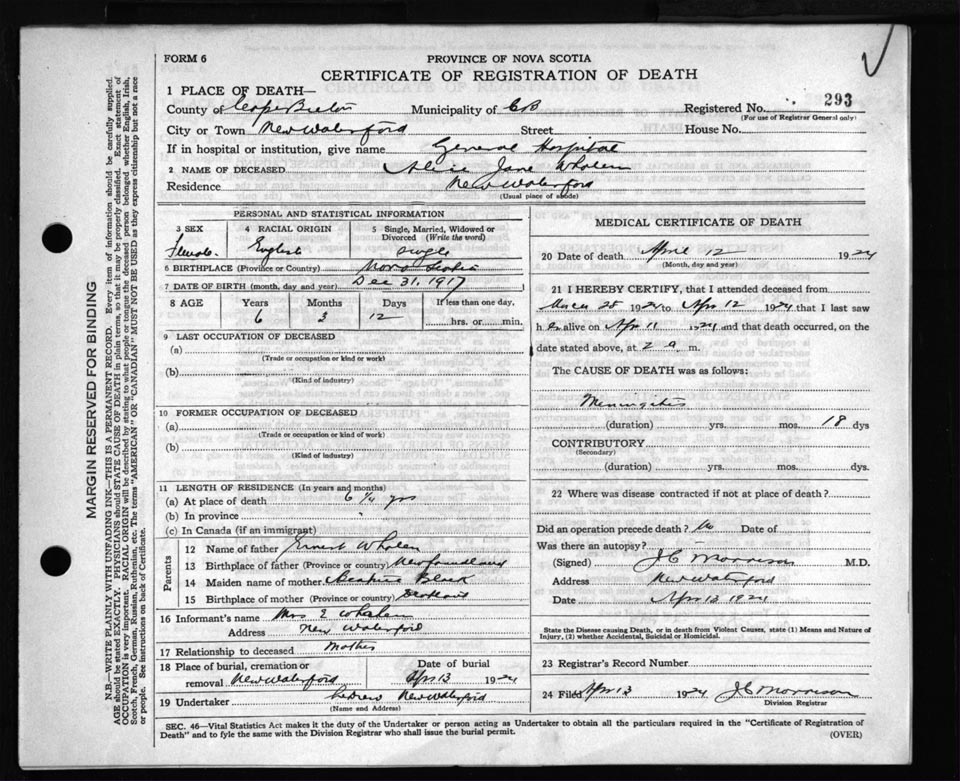 FORM 6
PROVINCE OF NOVA SCOTIA
CERTIFICATE OF REGISTRATION OF DEATH
1 PLACE OF DEATH—
County of Cape Breton Municipality of C B Registered No. 293
(For use of Registrar General only)
City or Town New Waterford Street House No.
If in hospital or institution, give name General Hospital
2 NAME OF DECEASED Alice Jane Whalen
Residence New Waterford
(Usual place of abode)
PERSONAL AND STATISTICAL INFORMATION
3 SEX 4 RACIAL ORIGIN 5 Single, Married, Widowed or Divorced (Write the word)
Female. English single
6 BIRTHPLACE (Province or Country) Nova Scotia
7 DATE OF BIRTH (month, day and year) Dec 31, 1917
8 AGE Years Months Days If less than one day,
6 3 12 hrs. or min.
9 LAST OCCUPATION OF DECEASED
(a)
(Trade or occupation or kind or work)
(b)
(Kind of industry)
10 FORMER OCCUPATION OF DECEASED
(a)
(Trade or occupation or kind or work)
(b)
(Kind of industry)
11 LENGTH OF RESIDENCE (In years and months)
(a) At place of death 6 1/4 yrs
(b) In province "
(c) In Canada (if an immigrant)
Parents
12 Name of father Ernest Whalen
13 Birthplace of father (Province or country) Newfoundland
14 Maiden name of mother Beatrice
15 Birthplace of mother (Province or country) Scotland
16 Informant's name Mrs E Whalen
Address New Waterford
17 Relationship to deceased Mother
18 Place of burial, cremation or removal New Waterford
Date of burial Apr 13 1924
19 Undertaker New Waterford
(Name and Address)
MEDICAL CERTIFICATE OF DEATH
20 Date of death April 12 1924
(Month, day and year)
21 I HEREBY CERTIFY, that I attended deceased from
March 25 1924 to Apr 12 1924 that I last saw
h er alive on Apr 11 1924 and that death occurred, on the
date stated above, at 2 a. m.
The CAUSE OF DEATH was as follows:
Meningitis
(duration) yrs. mos. 18 dys
CONTRIBUTORY
(Secondary)
(duration) yrs. mos. dys.
22 Where was disease contracted if not at place of death?
Did an operation precede death? No Date of
Was there an autopsy?
(Signed) J C Morrison M.D.
Address New Waterford
Date Apr 13 1924
State the Disease causing Death, or in death from Violent Causes, state (1) Means and Nature of
Injury, (2) whether Accidental, Suicidal or Homicidal.
23 Registrar's Record Number
24 Filed Apr 13 1924 J C Morrison
Division Registrar
SEC. 46—Vital Statistics Act makes it the duty of the Undertaker or person acting as Undertaker to obtain all the particulars required in the "Certificate of Registration of
Death" and to fyle the same with the Division Registrar who shall issue the burial permit.
(OVER)
MARGIN RESERVED FOR BINDING
N.B.—WRITE PLAINLY WITH UNFADING INK—THIS IS A PERMANENT RECORD. Every item of information should be carefully supplied.
AGE should be stated EXACTLY. PHYSICIANS should STATE CAUSE OF DEATH in plain terms, so that it may be properly classified. Exact statement of
OCCUPATION is very important. RACIAL ORIGIN will be described by stating to what people or tongue the deceased person belonged whether English, Irish,
Scotch, French, German, Russian, Ruthenian, etc. The terms "AMERICAN" OR "CANADIAN" MUST NOT BE USED as they express citizenship but not a race
or people. See instructions on back of Certificate.